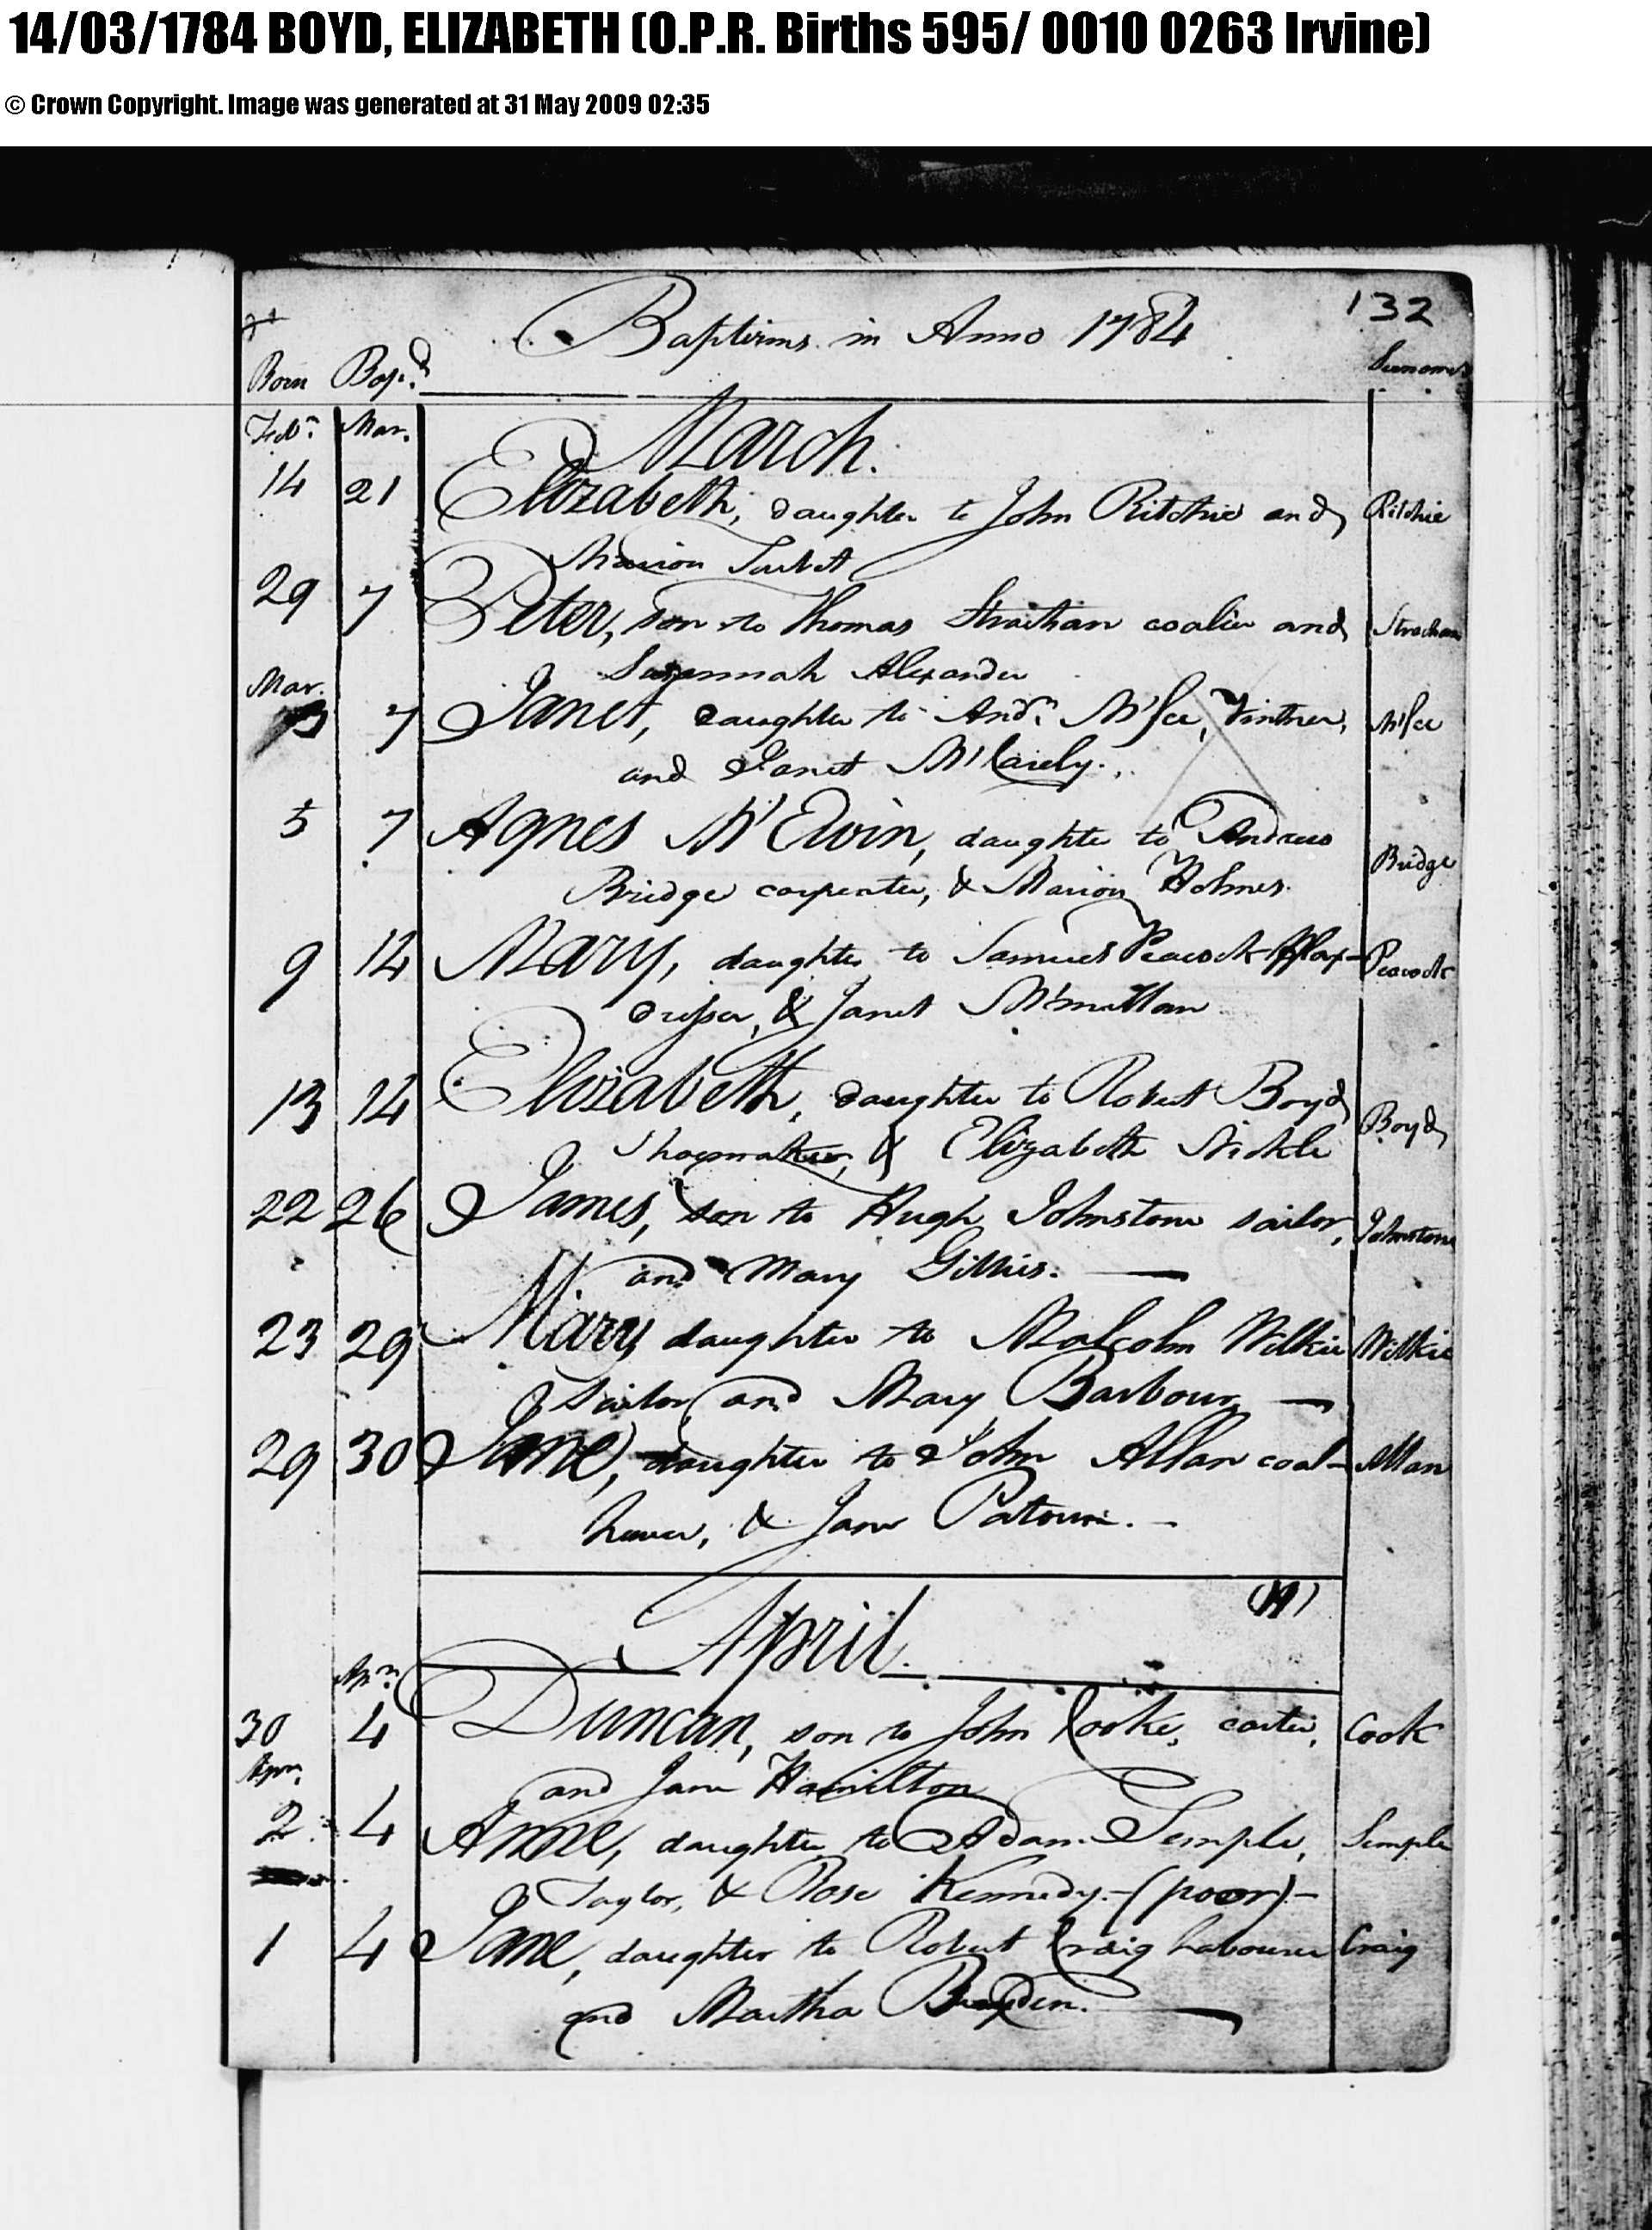 14/03/1784 BOYD, ELIZABETH (O.P.R. Births 595/ 0010 0263 Irvine)
© Crown Copyright. Image was generated at 31 May 2009 02:35
132
Baptisms in Anno 1784
Born Bap.d
Feb.r Mar.
March.
14 21 Elizabeth, daughter to John Ritchie and Ritchie
Marion Tarbet
29 7 Peter, son to Thomas Straithan coalier and Strachan
Susannah Alexander
Mar.
3 7 Janet, daughter to And.w McFee, Vintner, McFee
and Janet
5 7 Agnes McEwin, daughter to Andrew
Bridge
Bridge carpenter, & Marion Holmes.
9 14 Mary, daughter to Samuel Peacock flax- Peacock
dresser, & Janet Mcmillan
13 14 Elizabeth, daughter to Robert Boyd Boyd
Shoemaker, & Elizabeth Nickle
22 26 James, son to Hugh Johnstone sailor, Johnstone
and Mary Gillies.
23 29 Mary daughter to Malcolm Wilkie Wilkie
Sailor and Mary Barbour
29 30 Jane, daughter to John Allan coal- Allan
hewer, & Jane
April.
Apr.
30 4 Duncan, son to John Cooke, carter, Cook
and Jane Hamilton
Apr.
2 4 Anne, daughter to Adam Semple, Semple
Taylor, & Rose Kennedy. (poor)
1 4 Jane, daughter to Robert Craig Labourer Craig
and Martha